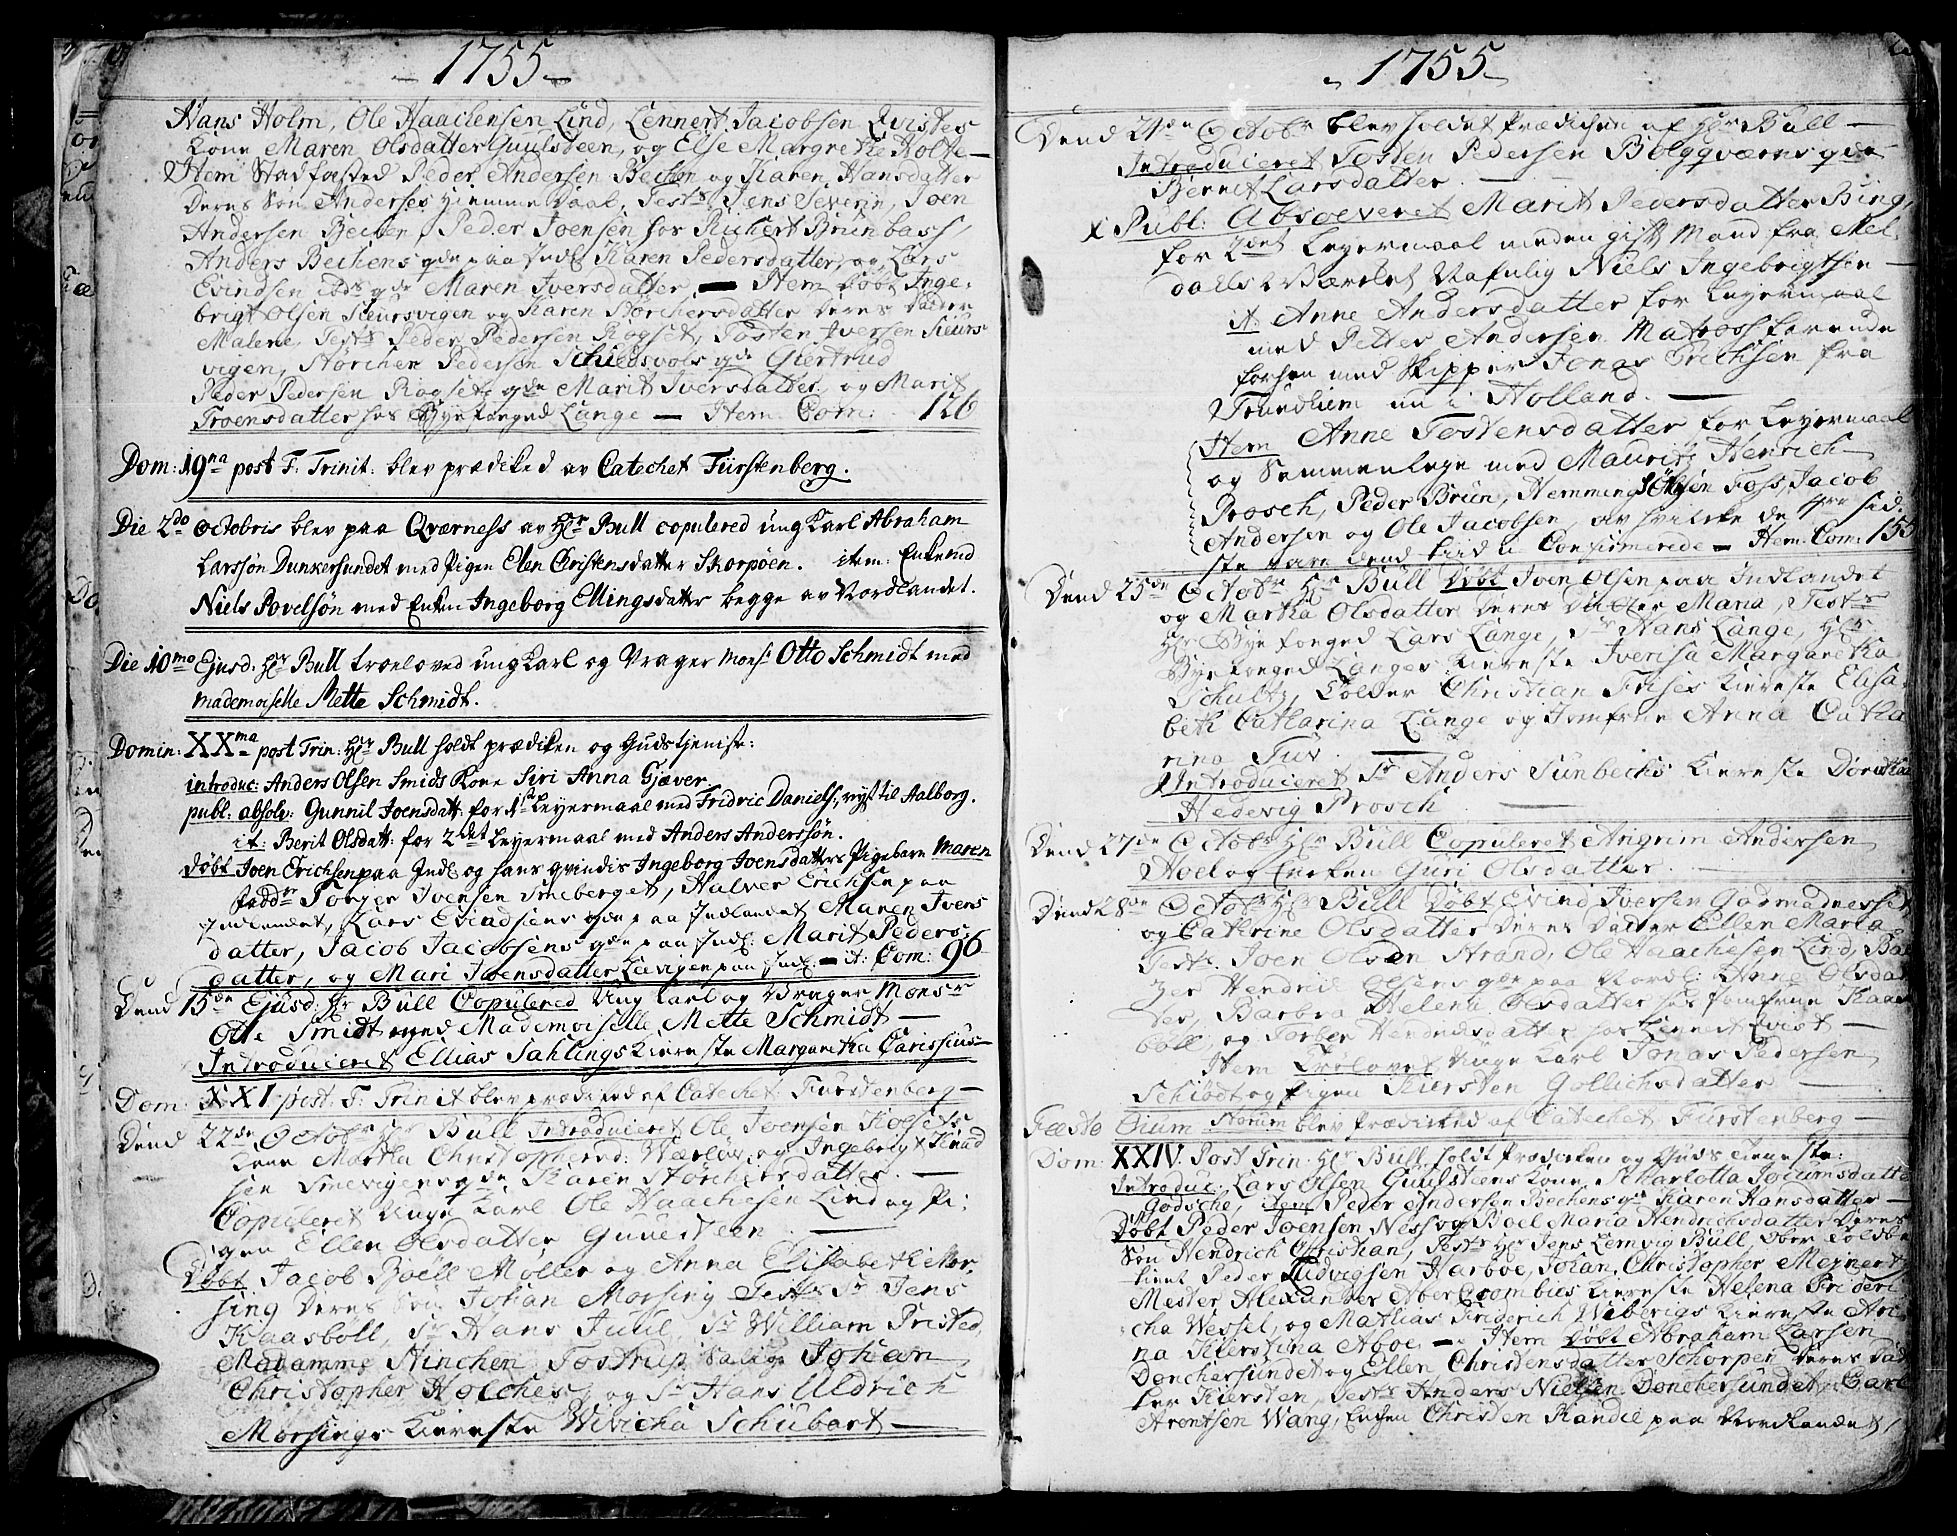 1755
Hans Holm, Ole Haachensen Lind, Lennert Jacobsen Qvistes
Kone Maren Olsdatter Guulsteen, og Else Margrethe Holte
Item Stadfæsted Peder Andersen Bechen og Karen Hansdatter
Deres Søn Anderses Hiemme Daab, Test: Jens Severin, Joen
Andersen Bechen, Peder Joensen hos Richert Brünbass,
Anders Bechens qde paa Indl: Karen Pedersdatter, og Lars
Evindsen ibds qde Maren Iversdatter, — Item Døbt Inge-
brigt Olsen Kieursvigen og Karen Størchersdatter Deres Datter
Malene, Test: Peder Pedersen Rogset, Tosten Iversen Kieurs-
vigen, Størchen Pedersen Schieldsvols qde Giertrud
Peder Pedersen Rogsets qde Marit Iversdatter, og Marit
Troensdatter hos Byefoged Lange — Item Com: 126
Dom: 19na post F. Trinit: blev prædiked av Catechet Fürstenberg.
Die 2do octobris blev paa Qværness av Hr Bull copulered ung Karl Abraham
Larssøn Dunkersundet med Pigen Elen Christensdatter Skorpøen. item: Enkemd
Niels Povelsøn med Enken Ingeborg Ellingsdatter begge av Nordlandet.
Die 10mo Ejusd: Hr Bull troeloved ung Karl og Vrager Mons: Otto Schmidt med
mademoiselle Mette Schmidt.
Domin: XXma post Trin: Hr Bull holdt prædiken og Gudstjeniste:
introduc: Anders Olsen Smids Kone Siri Anna Gjæver
publ: absolv: Gunnil Joensdatt: for 1ste Leyermaal med Fridric Daniels: reyst til Aalborg.
it: Berit Olsdatt: for 2det Leyermaal med Anders Anderssøn.
døbt Joen Erichsen paa Indl: og hans qvindis Ingeborg Joensdatters Pigebarn Maren
fadd: Torger Iversen Smeberget, Halvor Erichsen paa
Indlandet, Lars Evindsens qde paa Indlandet Maren Ivers
datter, Jacob Jacobsens qde paa Indl: Marit Peders-
datter, og Mari Joensdatter Leevigen paa Indl: — it: Com: 96
Dend 15de Ejusd: Hr Bull Copulered Ung Karl og Vrager Monsr
Otte Smidt med Mademoiselle Mette Schmidt —
Introduceret Ellias Sahlings Kiereste Margaretha Carissius
Dom: XXI post: F: Trinit blev prædiked af Catechet Furstenberg —
Dend 22de Octobr Hr Bull Introduceret Ole Joensen Kolsets
Kone Martha Christophersd: Værløs, og Ingebrigt Knud
sen Smevigens qde Karen Størchersdatter. —
Copuleret Unge Karl Ole Haachesen Lind og Pi:
gen Ellen Olsdatter Guulsteen —
Døbt Jacob Bjoell Møller og Anna Elisabeth Mor-
sing Deres Søn Johan Morsing Test: Sr Jens
Kaasbøll, Sr Hans Juul, Sr William Pristed,
Madamme Ninchen Tostrup, Salig Johan
Christopher Holches, og Sr Hans Uldrich
Morsings Kiereste Wivicha Schubart —
1755
Dend 24de Octobr blev holdet Prædichen af Hr Bull —
Introduceret Tosten Pedersen Bolgqværns qde
Berret Larsdatter. —
x Publ: Absolveret Marit Pedersdatter Bing,
for 2det Leyermaal med en gift Mand fra Mel-
dals Værchet Nafnlig Niels Ingebrigtsen —
it: Anne Andersdatter for Leyermaal
med Petter Andersen Matross farende
forhen med Skipper Jonas Erichsen fra
Trundhiem nu i Holland. —
Item Anne Tostensdatter for Leyermaal
og Sammenleye med Mauritz Henrich
Prosch, Peder Brün, Hemming Olsen Foss, Jacob
Andersen og Ole Jacobsen, av hvilcke de 4re sid-
ste vare dend tiid u Confirmerede — Item Com: 155
Dend 25de Octobr Hr Bull Døbt Joen Olsen paa Indlandet
og Martha Olsdatter Deres Datter Maria, Test:
Hr Byefoged Lars Lange, Sr Hans Lange, Hr
Byefoged Langes Kiereste Iverisa Margaretha
Schultz, Tolder Christian Frises Kiereste Elisa-
beth Catharina Lange og Jomfrue Anna Catha
rina Tuv —
Introduceret Sr Anders Sunbechs Kiereste Dorothea
Hedevig Prosch —
Dend 27de Octobr Hr Bull Copuleret Angrim Andersen
Hoel og Enchen Guri Olsdatter. —
Dend 28de Octobr Hr Bull Døbt Evind Iversen Godmadnesset
og Cathrine Olsdatter Deres Datter Ellen Maria
Test: Joen Olsen Strand, Ole Haachesen Lind, Bæ
Hendric Olsens qde paa Nordl: Anne Olsdat
ter, Barbra Helena Olsdatter hos Jomfrue Kaas
bøll, og Torber Hendricsdatter hos Lennert Qvist —
Item Troelovet Unge Karl Jonas Pedersen
Schiødt og Pigen Kiersten Gollichsdatter —
Fæsto Oium Storum blev Prædiked af Catechet Furstenberg —
Dom: XXIV. Post Trin: Hr Bull holdt Prædicken og Guds tieneste:
Introduc: Lars Olsen Guulsteens Kone Scharlotta Jocumsdatter
Godsche, item Peder Andersen Bechens qde Karen Hansdatter —
Døbt Peder Joensen Ness og Boel Maria Hendrichsdatter Deres
Søn Hendrich Christian, Test: Hr Jens Lemvig Bull, Ober Toldbe-
tient Peder Ludvigsen Harboe, Johan Christopher Meinert,
Mester Alexander Abercrombius Kiereste Helena Frideri-
cha Wessel, og Mathias Friderich Wibergs Kiereste Ari-
na Kierstina Aboe — Item Døbt Abraham Larsen
Donchersundet og Ellen Christensdatter Schorpen Deres Dat
ter Kiersten, Test: Anders Nielsen Donchersundet, Carl
Arentsen Wang, Enchen Christen Randie paa Nordlandet,